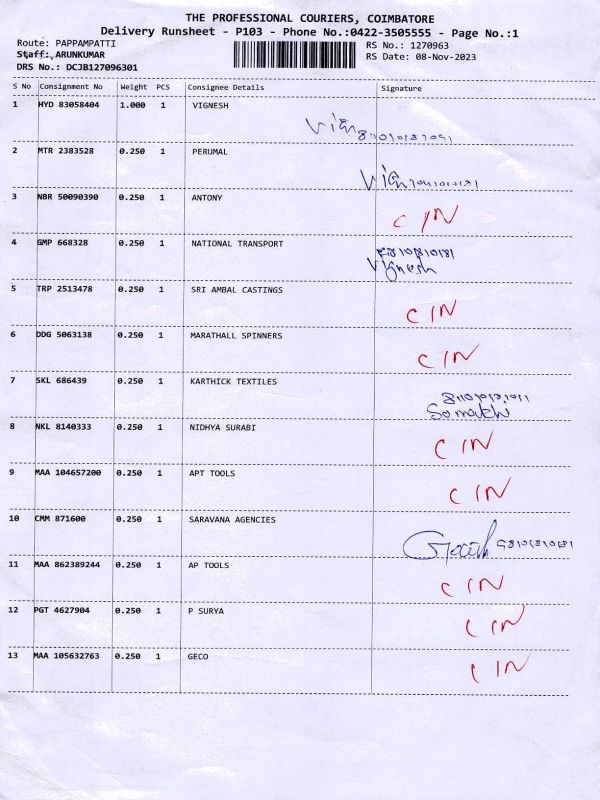 THE PROFESSIONAL COURIERS, COIMBATORE
Delivery Runsheet - P103 - Phone No.:0422-3505555 - Page No.:1
Route: PAPPAMPATTI RS No.: 1270963
Staff:,ARUNKUMAR RS Date: 08-Nov-2023
DRS No.: DCJB127096301
S No Consignment No Weight PCS Consignee Details Signature
1 HYD 83058404 1.000 1 VIGNESH
2 MTR 2383528 0.250 1 PERUMAL
3 NBR 50090390 0.250 1 ANTONY CIN
4 GMP 668328 0.250 1 NATIONAL TRANSPORT
Vignesh
5 TRP 2513478 0.250 1 SRI AMBAL CASTINGS CIN
6 DDG 5063138 0.250 1 MARATHALL SPINNERS CIN
7 SKL 686439 0.250 1 KARTHICK TEXTILES
8 NKL 8140333 0.250 1 NIDHYA SURABI CIN
9 MAA 104657200 0.250 1 APT TOOLS CIN
10 CMM 871600 0.250 1 SARAVANA AGENCIES
11 MAA 862389244 0.250 1 AP TOOLS CIN
12 PGT 4627904 0.250 1 P SURYA CIN
13 MAA 105632763 0.250 1 GECO CIN